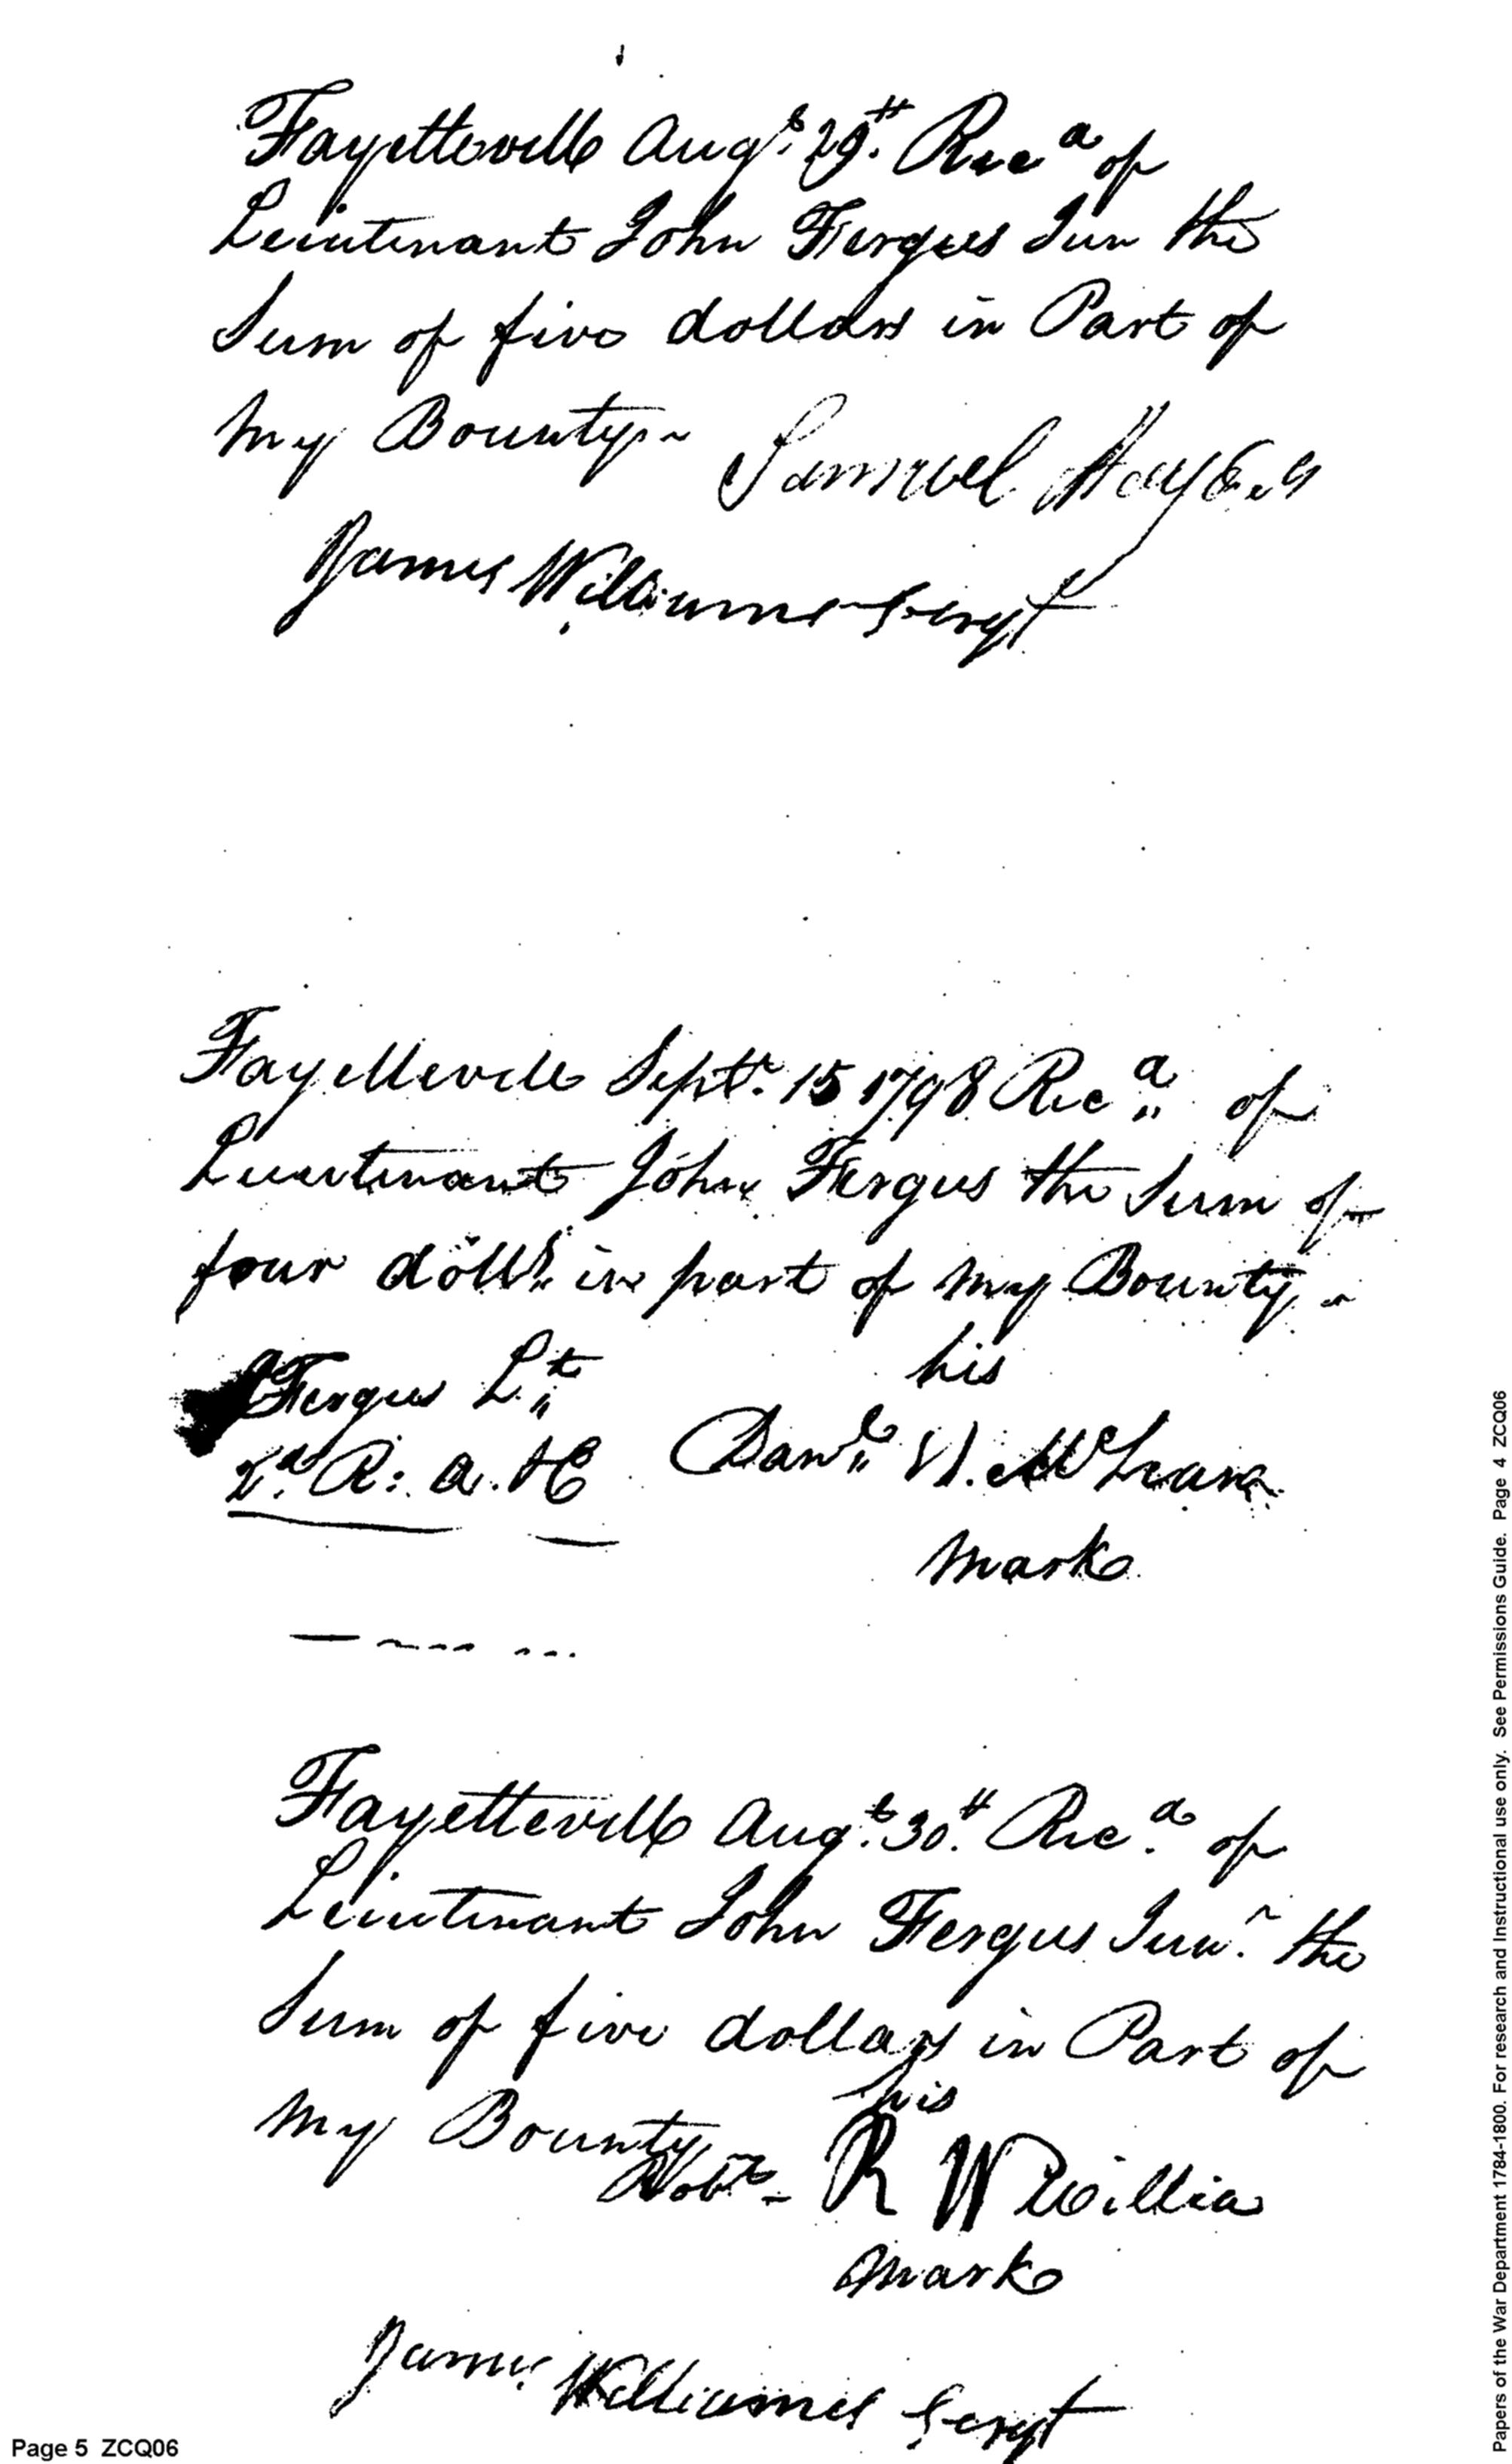 Fayetteville Augt. 29th. Recd of
Lieutenant John Fergus Jun the
Sum of five dollars in Part of
my Bounty~
Samuel
James Williams Sergt
Fayetteville Septr. 15 1798 Recd. of
Lieutenant John Fergus the Sum of
four dolls. in part of my Bounty~
his
Fergus Lt.
Danl. M. McLean
2d. R: A. & E
mark
Fayetteville Augt. 30th. Recd. of
Lieutenant John Fergus Junr. the
Sum of five dollars in Part of
his
my Bounty
Robt- R W Willia
mark
James Williams Sergt
Page 5 ZCQ06
Papers of the War Department 1784-1800. For research and Instructional use only. See Permissions Guide. Page 4 ZCQ06